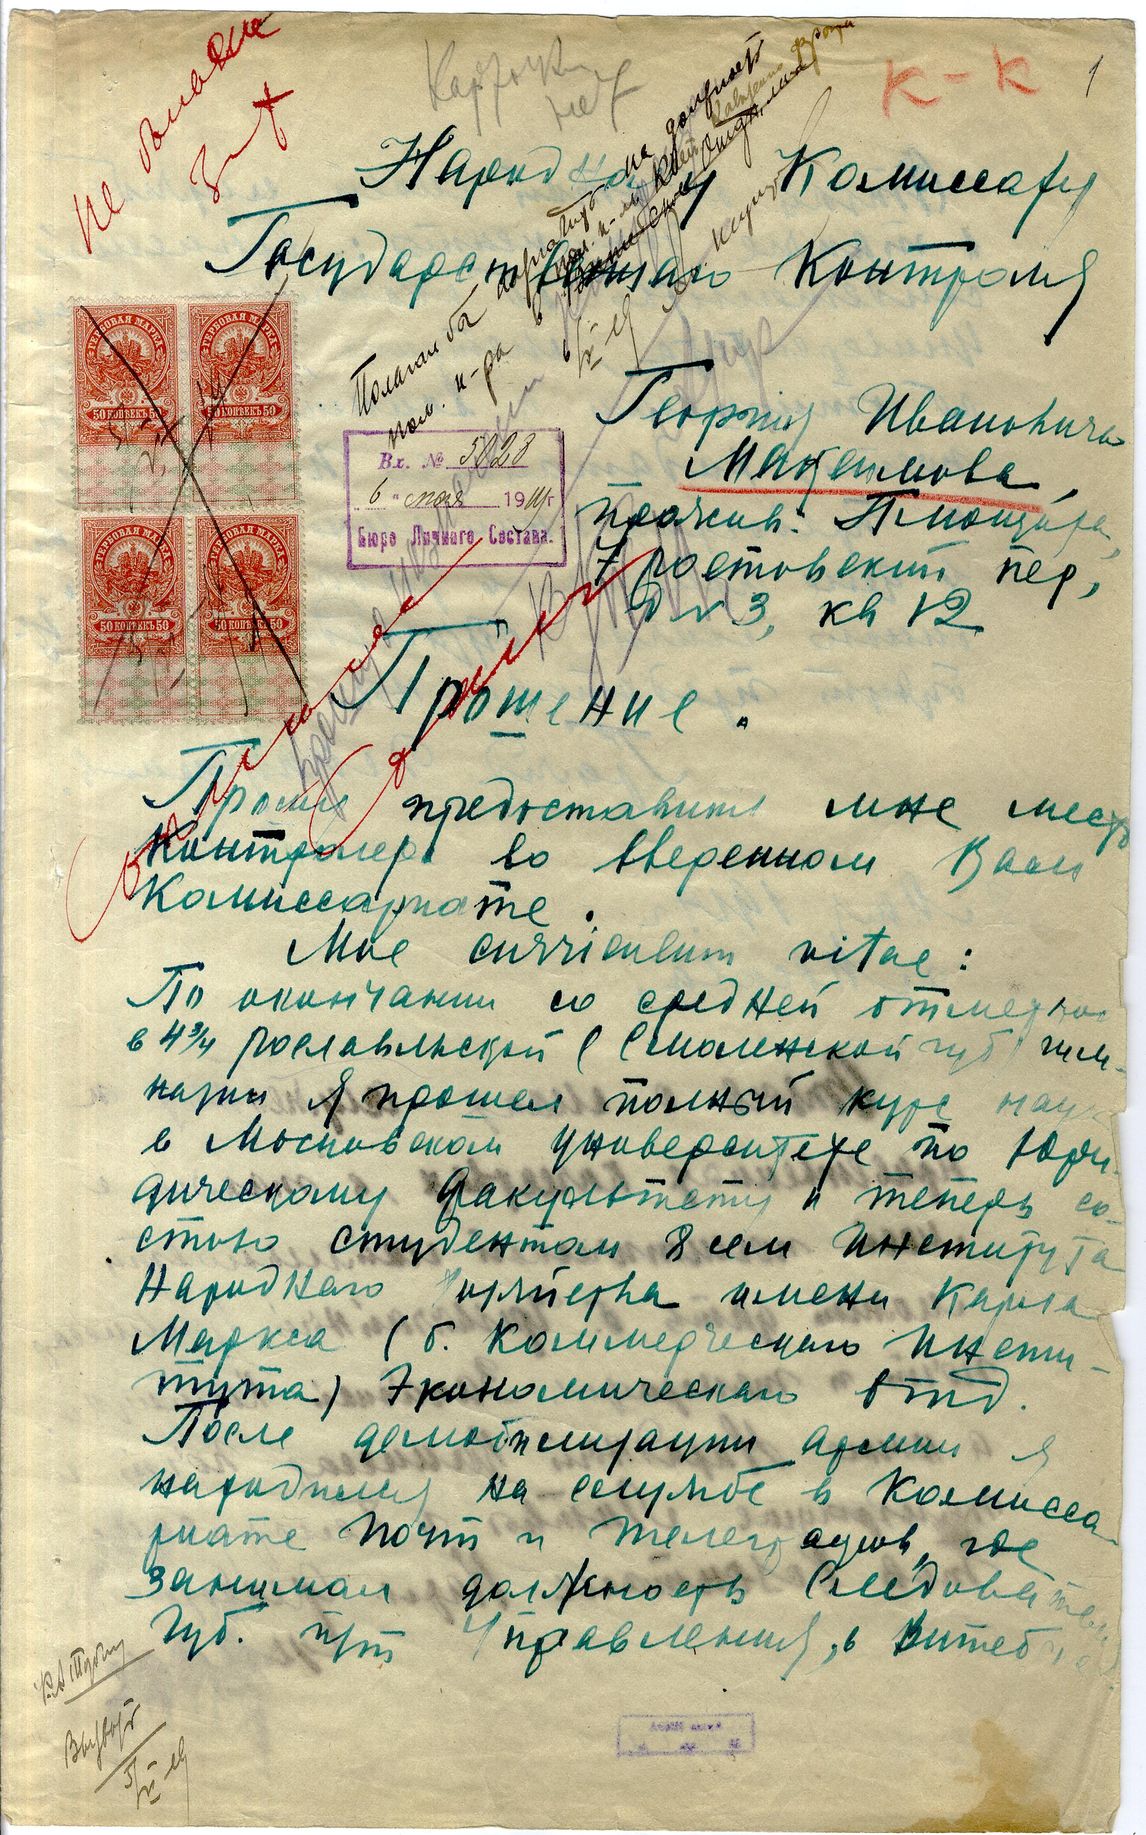 Не
К-К
1
Народному Комиссару
Государственного Контроля
ГЕРБОВАЯ МАРКА
50 КОПѢЕКЪ 50
ГЕРБОВАЯ МАРКА
50 КОПѢЕКЪ 50
ГЕРБОВАЯ МАРКА
50 КОПѢЕКЪ 50
ГЕРБОВАЯ МАРКА
50 КОПѢЕКЪ 50
Полагал бы
на должность
Вх. № 5028
"6" мая 1919 г
Бюро Личнаго Состава.
Георгия Ивановича
Максимова,
прожив. Плющиха,
7 Ростовский пер,
д № 3, кв 12
Прошение.
Прошу предоставить мне место
Контролера во вверенном Вам
Комиссариате.
Мое curriculum vitae:
По окончании со средней отметкою
в 4¾ Рославльской (Смоленской губ) гим-
назии я прошел полный курс наук
в Московском Университете по Юри-
дическому факультету и теперь со-
стою студентом 8 сем Института
Народного Хозяйства имени Карла
Маркса (б. Коммерческого Инсти-
тута) Экономического отд.
После демобилизации армии я
находился на службе в Комисса
риате Почт и Телеграфов, где
занимал должность Следователя
Губ. при Управления, в Витебске
Вызвать